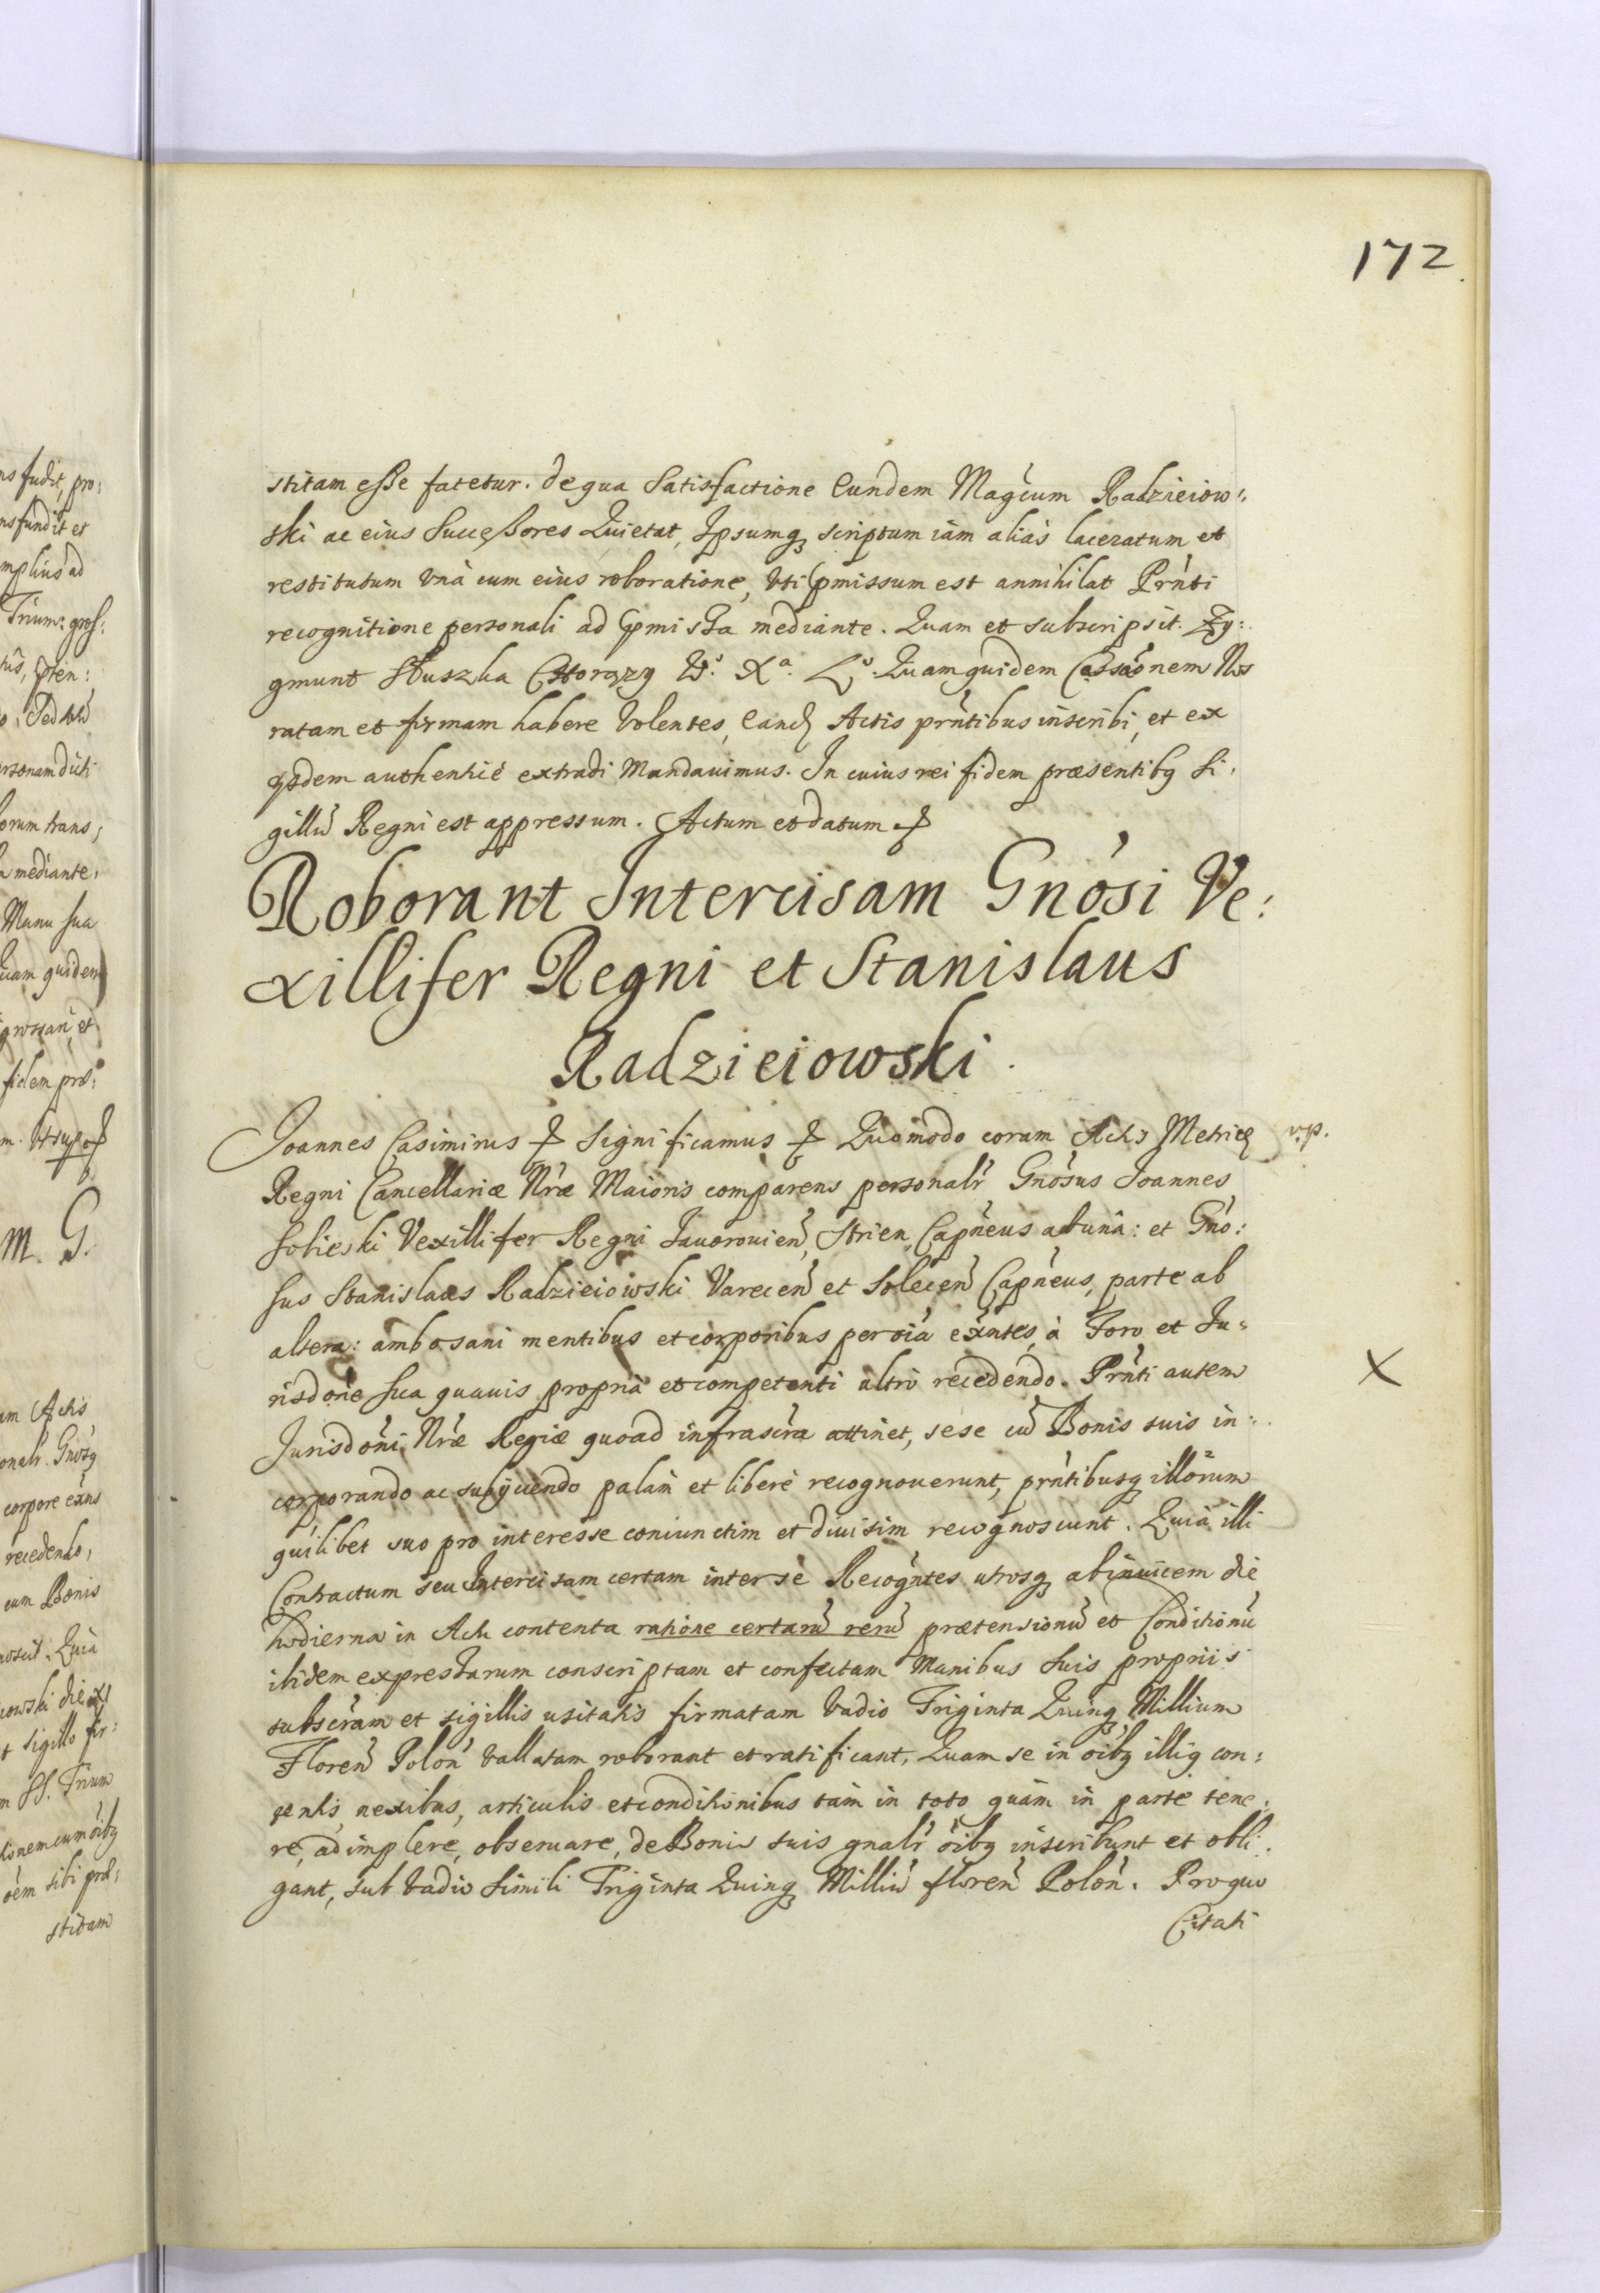 172
stitam esse fatetur. de qua Satisfactione Eundem Magcum Radzieiow:
ski ac eius Successores Quietat, Ipsumq scriptum iam alias laceratum et
restitutum vna cum eius roboratione, vti pmissum est annihilat Prnti
recognitione personali ad pmissa mediante. Quam et subscripsit. Zy:
gmunt Słuszka Chorązy W. X. L. Quam quidem Cassaonem Nos
ratam et firmam habere Volentes, Eand Actis prntibus inscribi, et ex
ijsdem authenticè extradi Mandauimus. In cuius rei fidem præsentibq Si,
gillũ Regni est appressum. Actum et datum
Roborant Intercisam Gnosi Ve:
xillifer Regni et Stanislaus
Radzieiowski.
Joannes Casimirus Significamus Quomodo coram Actis Metricę v.p.
Regni Cancellariæ Nræ Maioris comparens personalr Gnosus Joannes
Sobieski Vexillifer Regni Jauorouien, Strien, Capneus ab una: et Gno:
sus Stanislaus Radzieiowski Varecen et Solecen Capneus, parte ab
altera: ambo sani mentibus et corporibus per oia exntes, à Foro et Ju-
risdone sua quauis proprià et competenti ultrò recedendo. Prnti autem X
Jurisdoni Nræ Regiæ quoad infrascra attinet, sese cũ Bonis suis in:
corporando ac subijciendo palàm et liberè recognouerunt, prntibusq illorum
quilibet suo pro interesse coniunctim et diuisim recognoscunt. Quia illi
Contractum seu Intercisam certam inter sè Recogntes utrosq abinuicem die
hodierna in Actu contenta ratione certarũ rerũ prætensionũ et Conditionũ
ibidem expressarum conscriptam et confectam Manibus suis proprijs
subscram et sigillis usitatis firmatam vadio Triginta Quinq Millium
Floren Polon vallatam roborant et ratificant, Quam se in oibq illiq con:
tentis, nexibus, articulis et conditionibus tàm in toto quàm in parte tene:
re, adimplere, obseruare, de Bonis suis gnalr oibq inscribunt et obli:
gant, sub Vadio simili Triginta Quinq Milliũ floren Polon. Pro quo
Citati